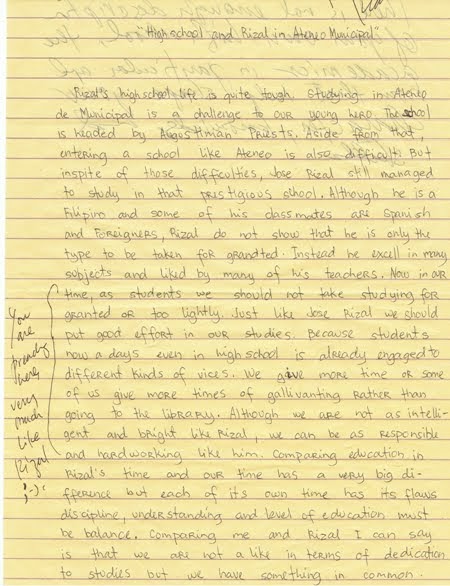 "High school and Rizal in Ateneo Municipal"
Rizal's high school life is quite tough. Studying in Ateneo
de Municipal is a challenge to our young hero. The school
is headed by Augustinian Priests. Aside from that,
entering a school like Ateneo is also difficult. But
inspite of those difficulties, Jose Rizal still managed
to study in that prestigious school. Although he is a
Filipino and some of his classmates are Spanish
and Foreigners, Rizal do not show that he is only the
type to be taken for grandted. Instead he excell in many
subjects and liked by many of his teachers. Now in our
time, as students we should not take studying for
granted or too lightly. Just like Jose Rizal we should
put good effort in our studies. Because students
now a days even in high school is already engaged to
different kinds of vices. We give more time or some
of us give more times of gallivanting rather than
going to the library. Although we are not as intelli-
gent and bright like Rizal, we can be as responsible
and hardworking like him. Comparing education in
Rizal's time and our time has a very big di-
fference but each of it's own time has its flaws
discipline, understanding and level of education must
be balance. Comparing me and Rizal I can say
is that we are not a like in terms of dedication
to studies but we have something in common.
You
are
preachy
here,
very
much
like
Rizal
;-):